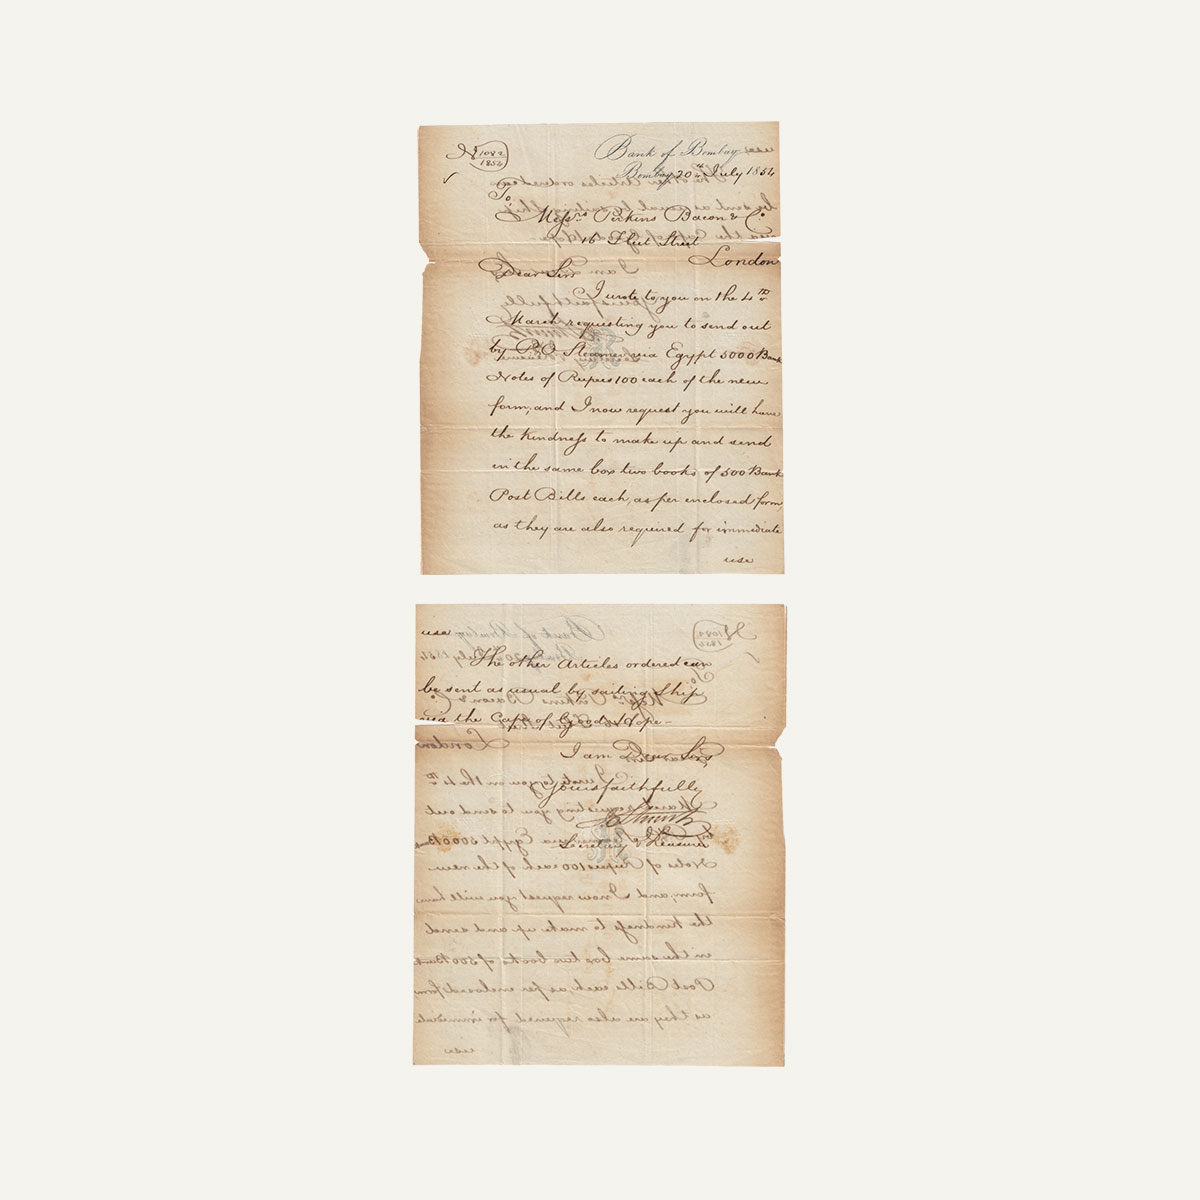 1082
1854
Bank of Bombay
Bombay 20th July 1854
To,
Messrs Perkins Bacon & Co
16 Fleet Street
London
Dear Sirs
I wrote to you on the 4th
March requesting you to send out
by P.O Steamer via Egypt 5000 Bank
Notes of Rupees 100 each of the new
form, and I now request you will have
the kindness to make up and send
in the same box two books of 500 Bank
Post Bills each, as per enclosed form,
as they are also required for immediate
use
use
The other Articles ordered can
be sent as usual by sailing Ship
via the Cape of Good Hope—
I am Dear Sirs
Yours faithfully
Secretary & Treasurer